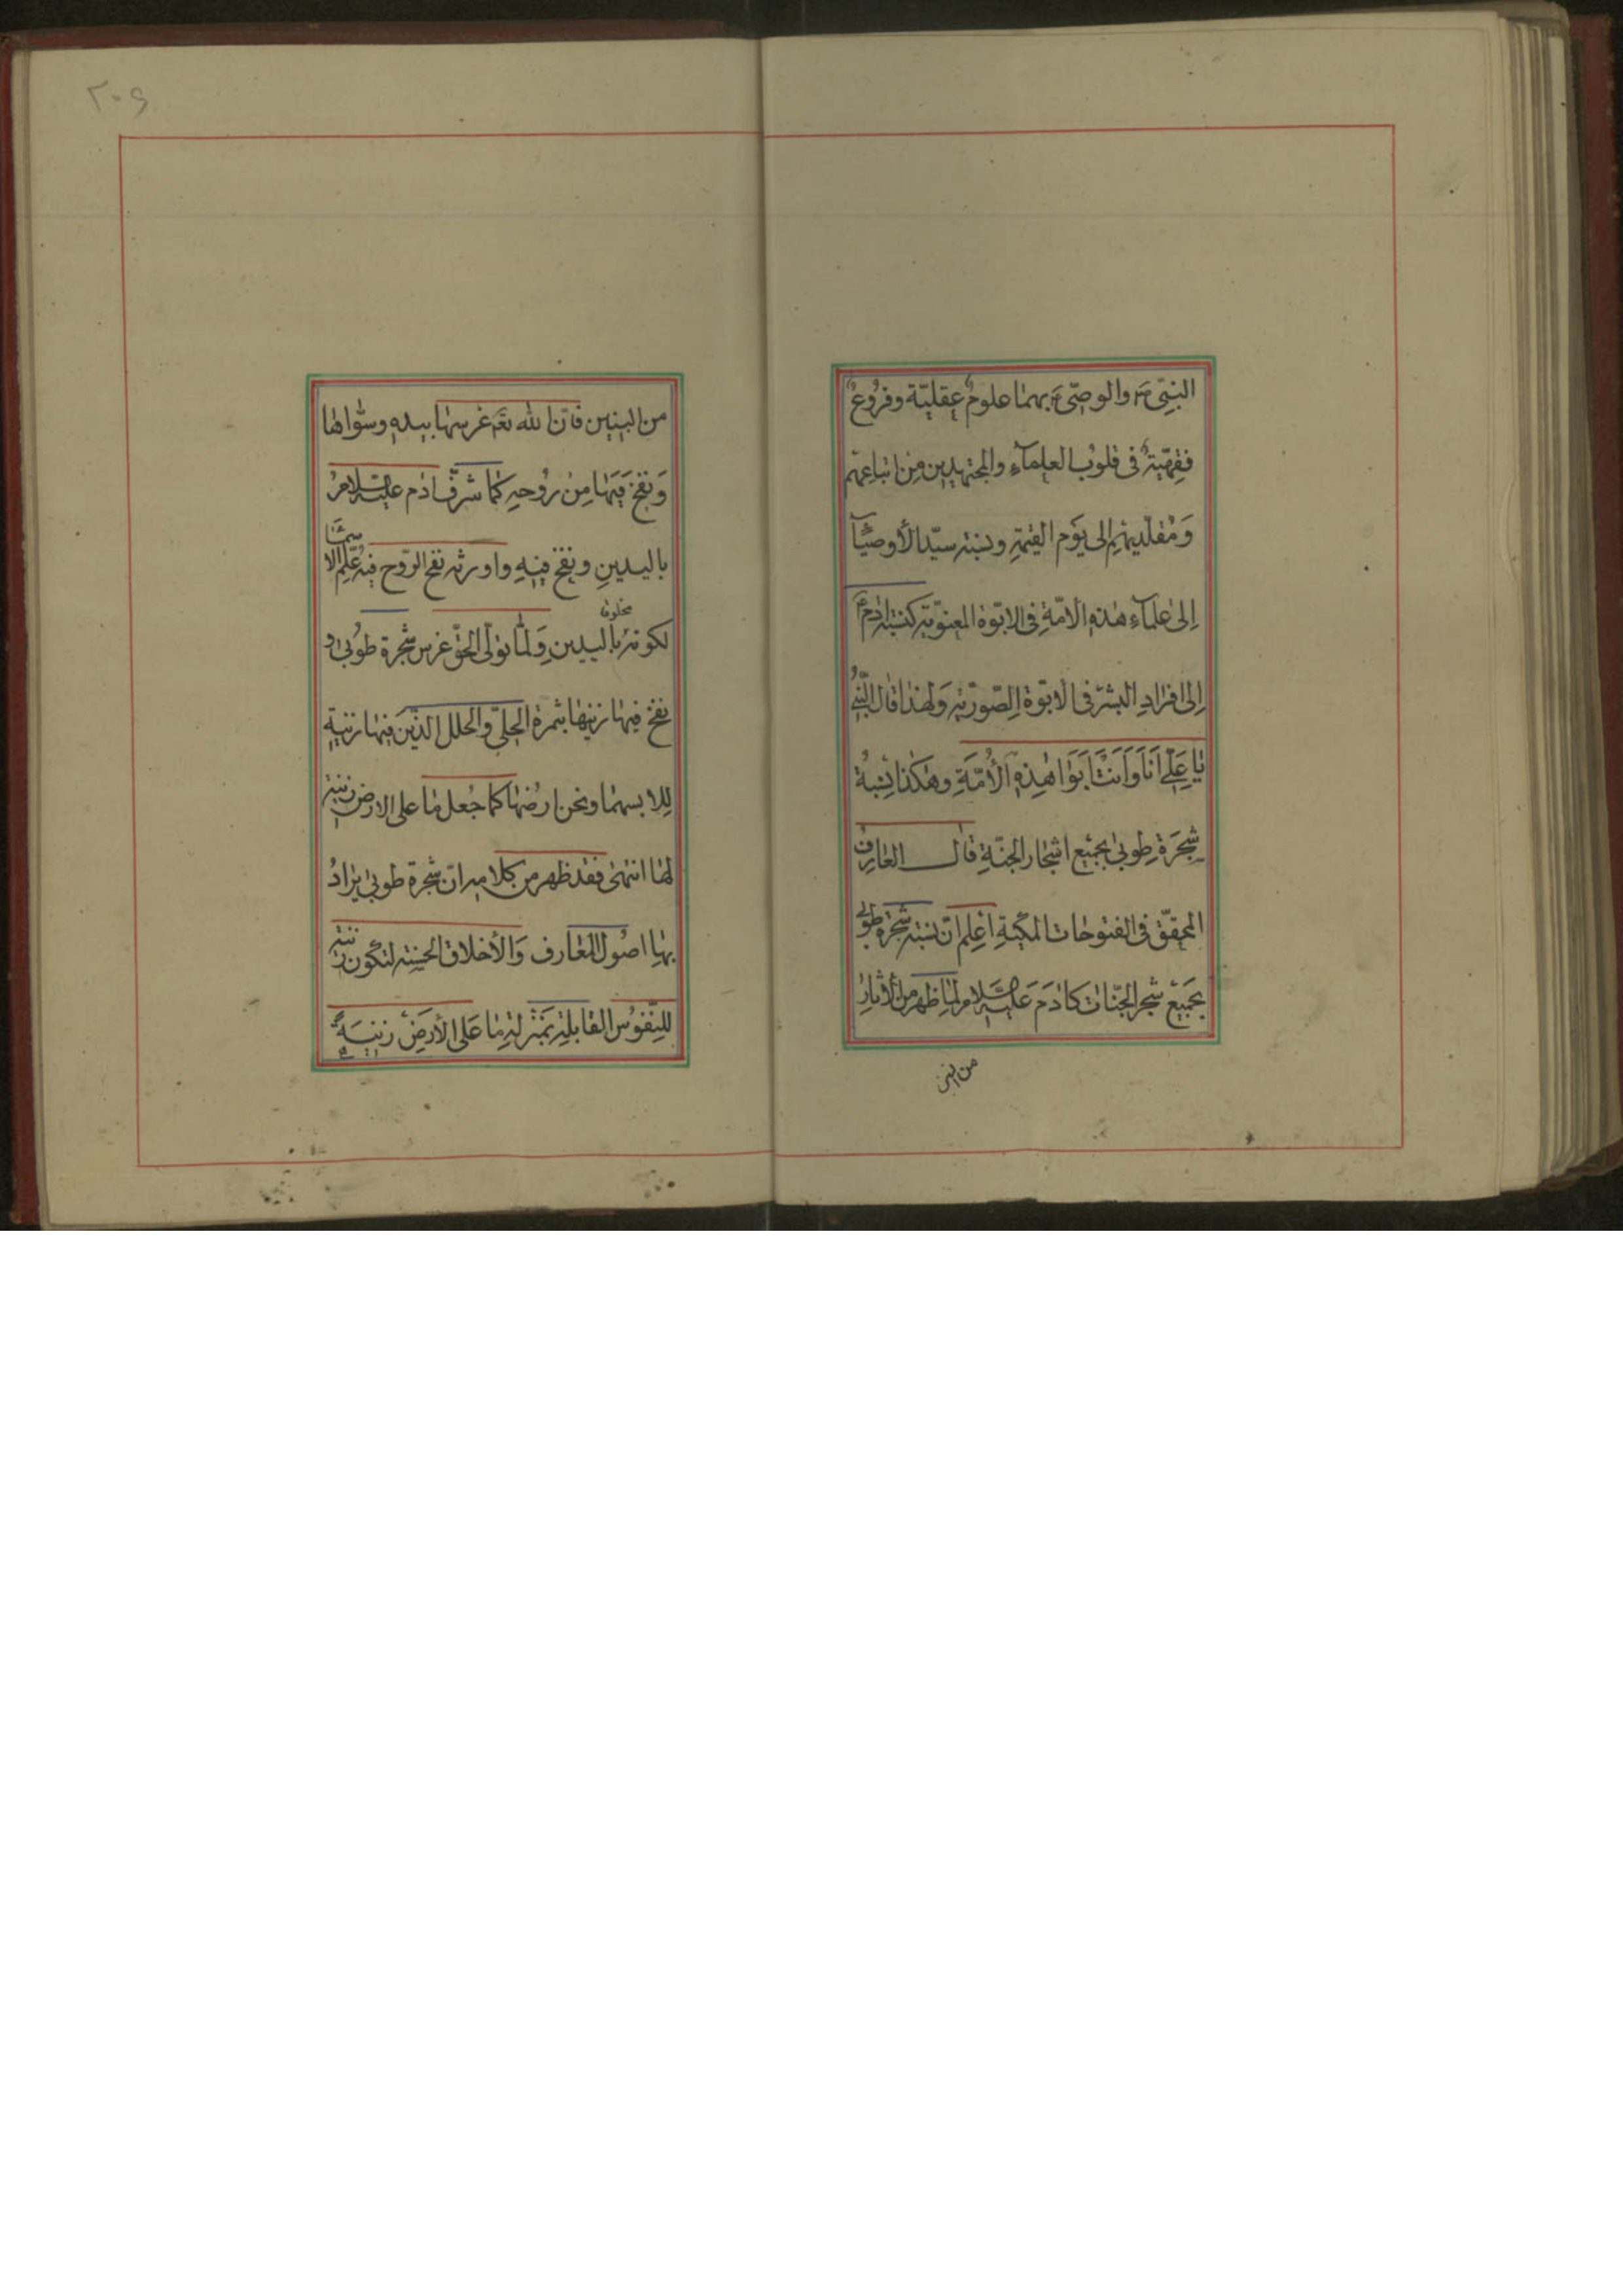 النبیّ ص والوصیّ ع بهما علومٌ عقلیّة وفروعٌ
فقهیّةٌ فی قلوب العلمآء والمجتهدین من اتباعهم
وَمُقلّدیهم إلی یَوم القیمة ونسبته سیّد الأوصیآء
إلی علمآء هذه الامّة فی الابوّة المعنویّة کنسبة ادم ع
إلی افراد البشر فی الابوّة الصّوریّة وَلهذا قال النّبیُّ
یا عَلیّ اَنَا وَاَنتَ اَبَوَا هٰذِهِ الأُمّةِ وهکذا نِسبةُ
شجَرَة طوبی بجمیع اشجار الجنّةِ قال العارف
المحقّق فی الفتوحات المکیّة اعلم انّ نسبة شجرة طوبی
بجَمیعْ شجر الجنّات کادَمَ عَلَیه السّلام لما ظهر من
من البنین
٢٠٩
من البنین فانّ الله تعَم غرسها بیده وسوّاها
وَنفخ فیها من رُوحِهِ کما شرّف ادَم علیه السّلامُ
بالیدین ونفخ فیهِ واورثه نفخ الرّوح فیهُ علم الا
سمٰآ
لکونه بالیدین وَلمّا تولّی الحقّ غرس شجرة طُوبیٰ و
مخلوق
نفخ فیها زیّنها بثمرة الحلیّ والحلل الذّیَن فیها زینة
لِلابسهما ونحن ارضها کما جُعل ما علی الارض زینة
لها انتهی فقد ظهر من کلامه انّ شجرة طوبیٰ یرادُ
بهِا اصُول المعارف وَالأخلاق الحسنة لتکون زینة
للنّفوُس القابلة بمَنزلة ما عَلی الأرَضْ زینَةً